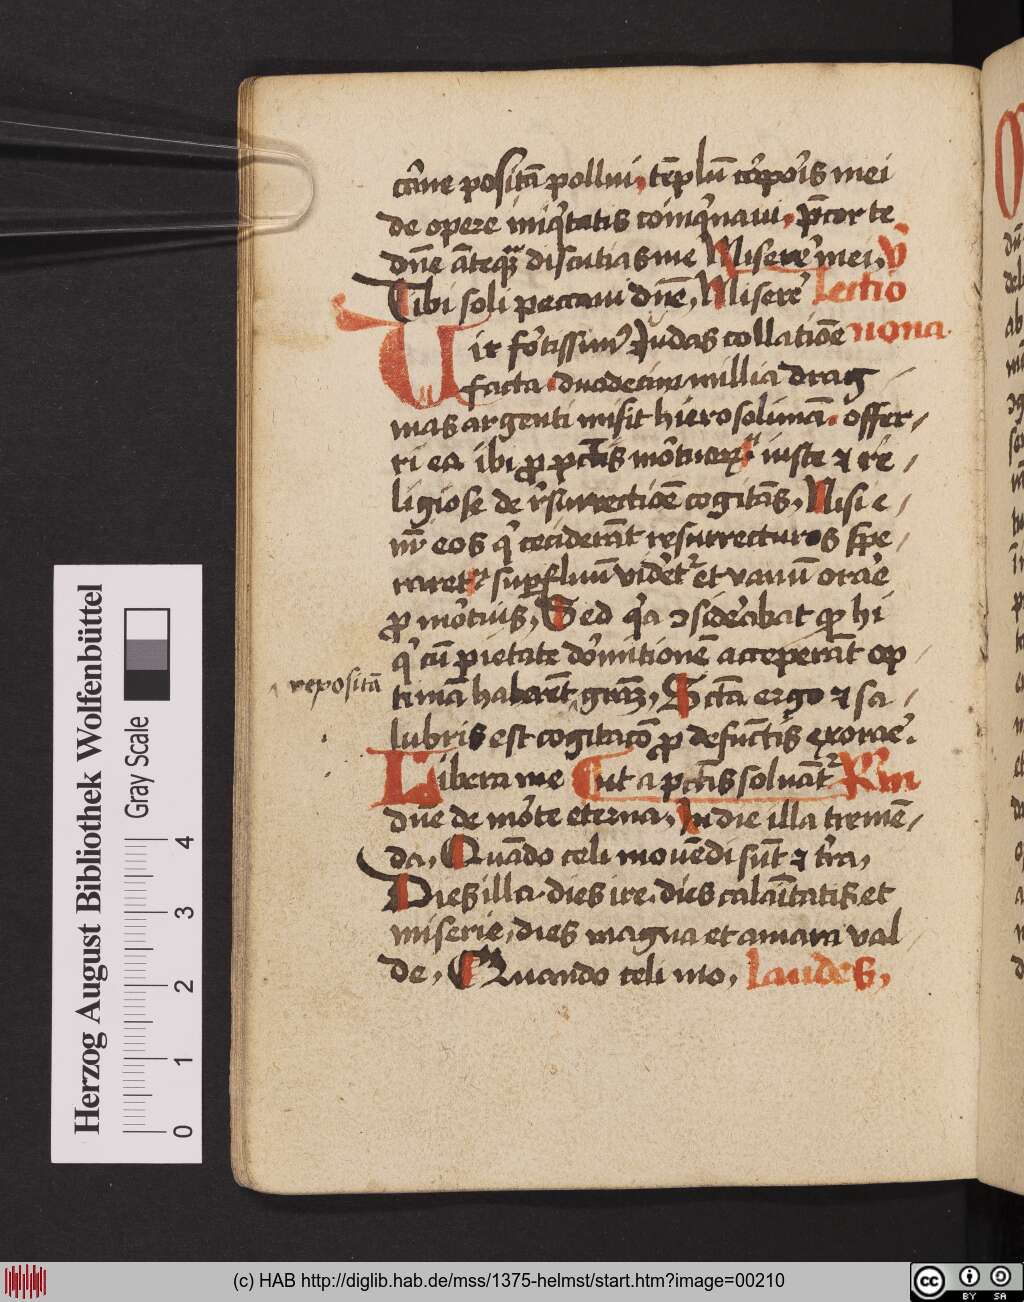 cārne positā pollui, tēplū corporis mei
de opere iniqͥtatis coinqͥnaui, p̄cor te
dn̄e āteqͣꝫ discutias me Miserē mei, V̄
Tibi soli peccaui dn̄e, Miserē Lectio
Uir fortissimꝰ Judas collatiōe nona.
facta duodecim millia drag
mas argenti misit hierosolimā. offer
ri ea ibi ꝓ pctīs mortuorꝝ iuste ⁊ re
ligiose de rͤsurrectiōe cogitās, Nisi e
nī eos qͥ ceciderāt resurrecturos spe
raret suꝑfluū videretᷣ et vanū orare
ꝓ mortuis, Sed qͥa ꝯsiderabat qꝫ hi
qͥ cū pietate dormitionē acceperāt op
repositā
timā haberēt grāꝫ, Sctā ergo ⁊ sa
lubris est cogitacō ꝓ defūctis exorare.
Libera me Cut a pctīs soluātᷣ Rm
dn̄e de morte eterna, In die illa tremē
da, Quādo celi mouēdi sūt ⁊ tr̄a,
Dies illa dies ire dies calaītatis et
miserie, dies magna et amara val
de, Quando celi mo, Laudes,
Herzog August Bibliothek Wolfenbüttel
Gray Scale
0 1 2 3 4
(c) HAB http://diglib.hab.de/mss/1375-helmst/start.htm?image=00210
cc BY SA